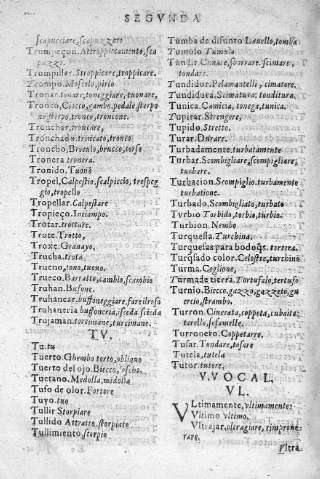 SEGVNDA
scapucciare, scapuzzare
Trompeçon. Attroppicamento, sca
puzzo
Trompillar. Stroppicare, troppicare.
Trompo. Moscolo, pirlo
Tronar. tonare, toneggiare, tuonare,
Tronco, Ciocco, gambo, pedale, storpo
storpo, tronco, troncone.
Tronchar, troncare,
Tronchado, troncato, tronco
Troncho, Bronco, brucco, torso
Tronera tronera.
Tronido, Tuono
Tropel, Calpestio, scalpiccio, trespeg
gio, tropello
Tropellar. Calpestare
Tropieço. Inciampo.
Trotar, trottare.
Trote. Trotto,
Troxe. Granayo,
Trucha, trota
Trueno, tono, tuono.
Trueco, Baratto, cambio, scambio
Truhan. Bufone.
Truhanear. buffoneggiare, far il
Truhaneria buffoneria,
Trujaman. torcimano, turcimano.
TV.
Tu. tu
Tuerto. Ghembo torto, obliquo
Tuerto del ojo. Bieco,
Tuetano. Medolla, midolla
Tufo de olor. Fortore
Tuyo. tuo
Tullir Storpiare
Tullido Attratto, storpiato
Tullimiento, storpio
Tumba de difunto Lanello, tomba
Tumulo Tumulo
Tundir Cimare, scimare.
tondare.
Tundidor. Pelamantelli, cimatore.
Tundidura. Scimatura, tonditura.
Tunica. Camicia, tonega, tunica.
Tupirar, Strengere.
Tupido. Stretto.
Turar. Durare.
Turbadamente, turbatamente
Turbar. Scombugliare, scompigliare,
turbare.
Turbacion. Scompiglio, turbamento
turbatione.
Turbado. Scombugliato, turbato
Turbio Turbido, torbio, turbio.
Turbion. Nembo
Turquesa. Turchina.
Turquesas para bodoqs. tortera.
Turqsado color. Celostre, turchino
Turma. Coglione,
Turmade tierra. Tortofulo, tertufo
Turnio. Bieco, gazzo, gazzotto, guer
cio, strambo.
Turron. Cinerata, coppeta,
torello, sosamelle.
Turronero. Coppetaro.
Tusar. Tondare, tosare
Tutela, tutela
Tutor. tutore.
V. VOCAL.
VL.
VLtimamente, ultimamente:
Vltimo ultimo.
Vltrajar, oltragiare, rimprone
rare.
Vltra